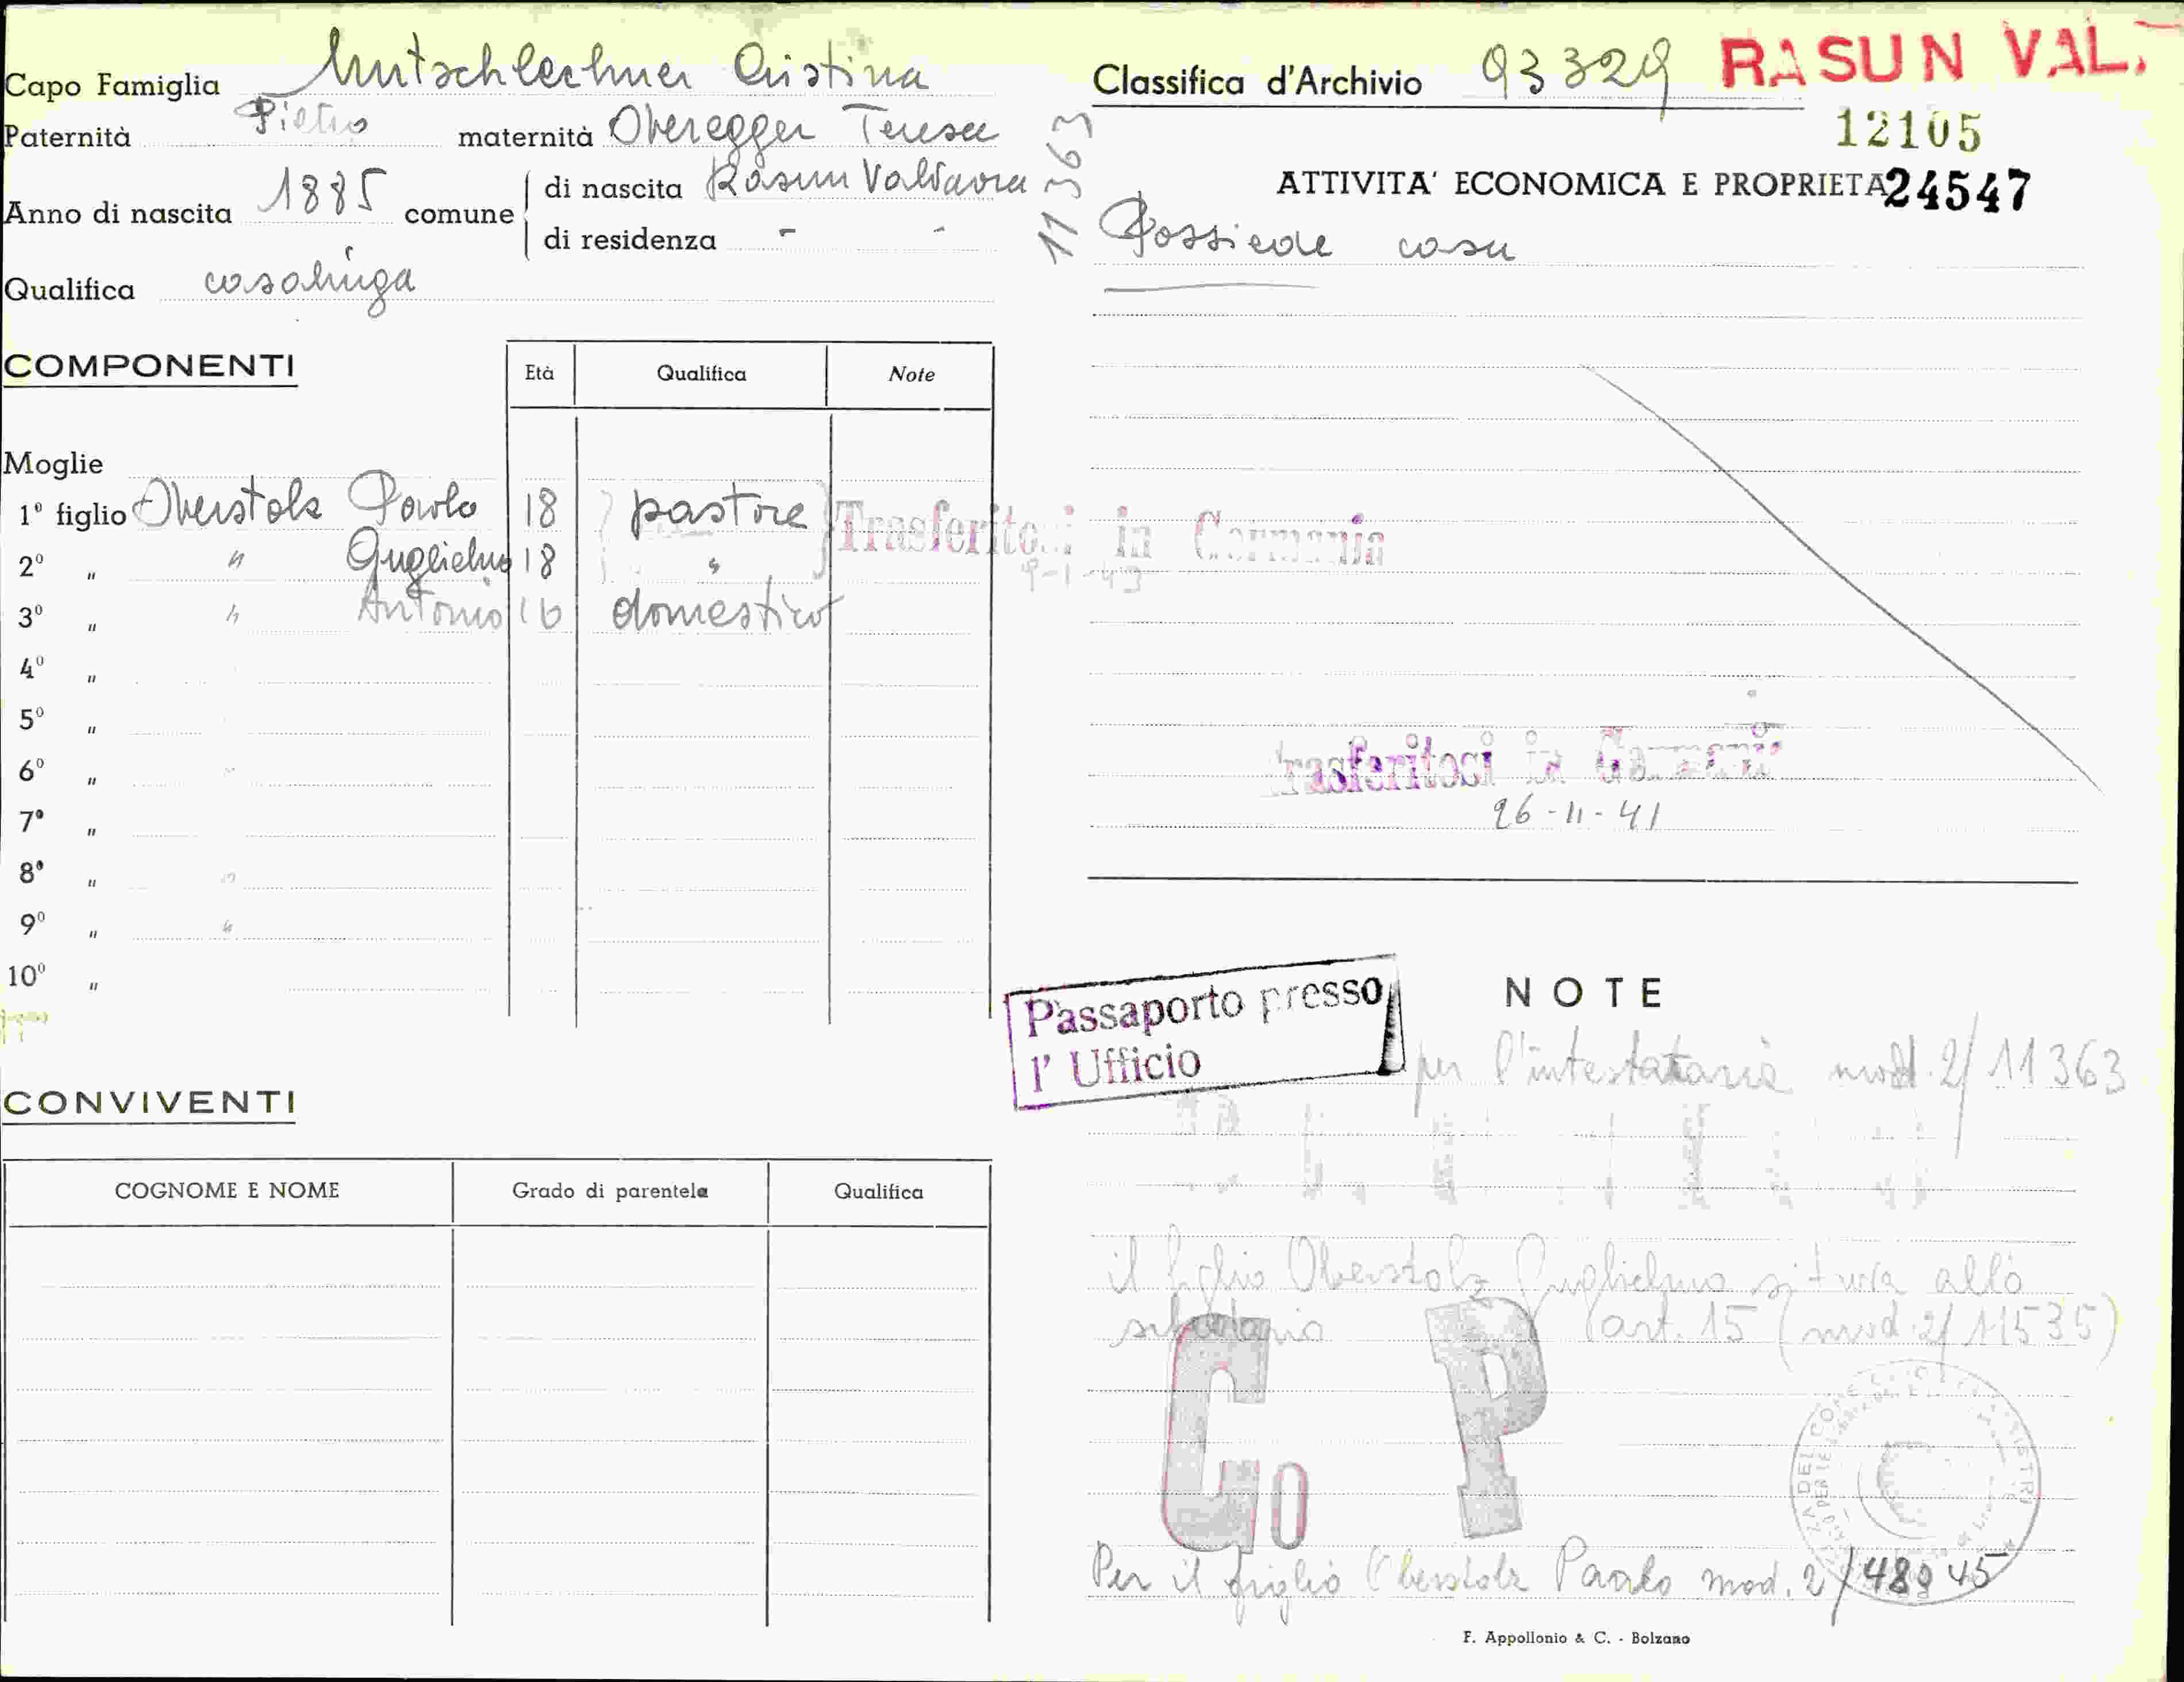 Capo Famiglia Mutschlechner Cristina
Paternità Pietro maternità Oberegger Teresa
Anno di nascita 1885 comune di nascita Rasun Valdaora
di residenza - -
Qualifica casalinga
COMPONENTI
Età Qualifica Note
Moglie
1º figlio Oberstolz Paolo 18 pastore Trasferitosi in Germania
2º " " Guglielmo 18 "
9-1-43
3º " " Antonio 16 domestico
4º "
5º "
6º "
7º "
8º "
9º " "
10º "
CONVIVENTI
COGNOME E NOME Grado di parentela Qualifica
Classifica d'Archivio 93329 RASUN VAL.
12105
11363
ATTIVITA' ECONOMICA E PROPRIETA 24547
Possiede casa
Trasferitosi in Germania
26-11-41
NOTE
Passaporto presso
l' Ufficio
per l'intestataria mod. 2/11363
il figlio Oberstolz Guglielmo si trova allo
art. 15 (mod. 2/11535)
Co P
Per il figlio Oberstolz Paolo mod. 2/48945
F. Appollonio & C. - Bolzano